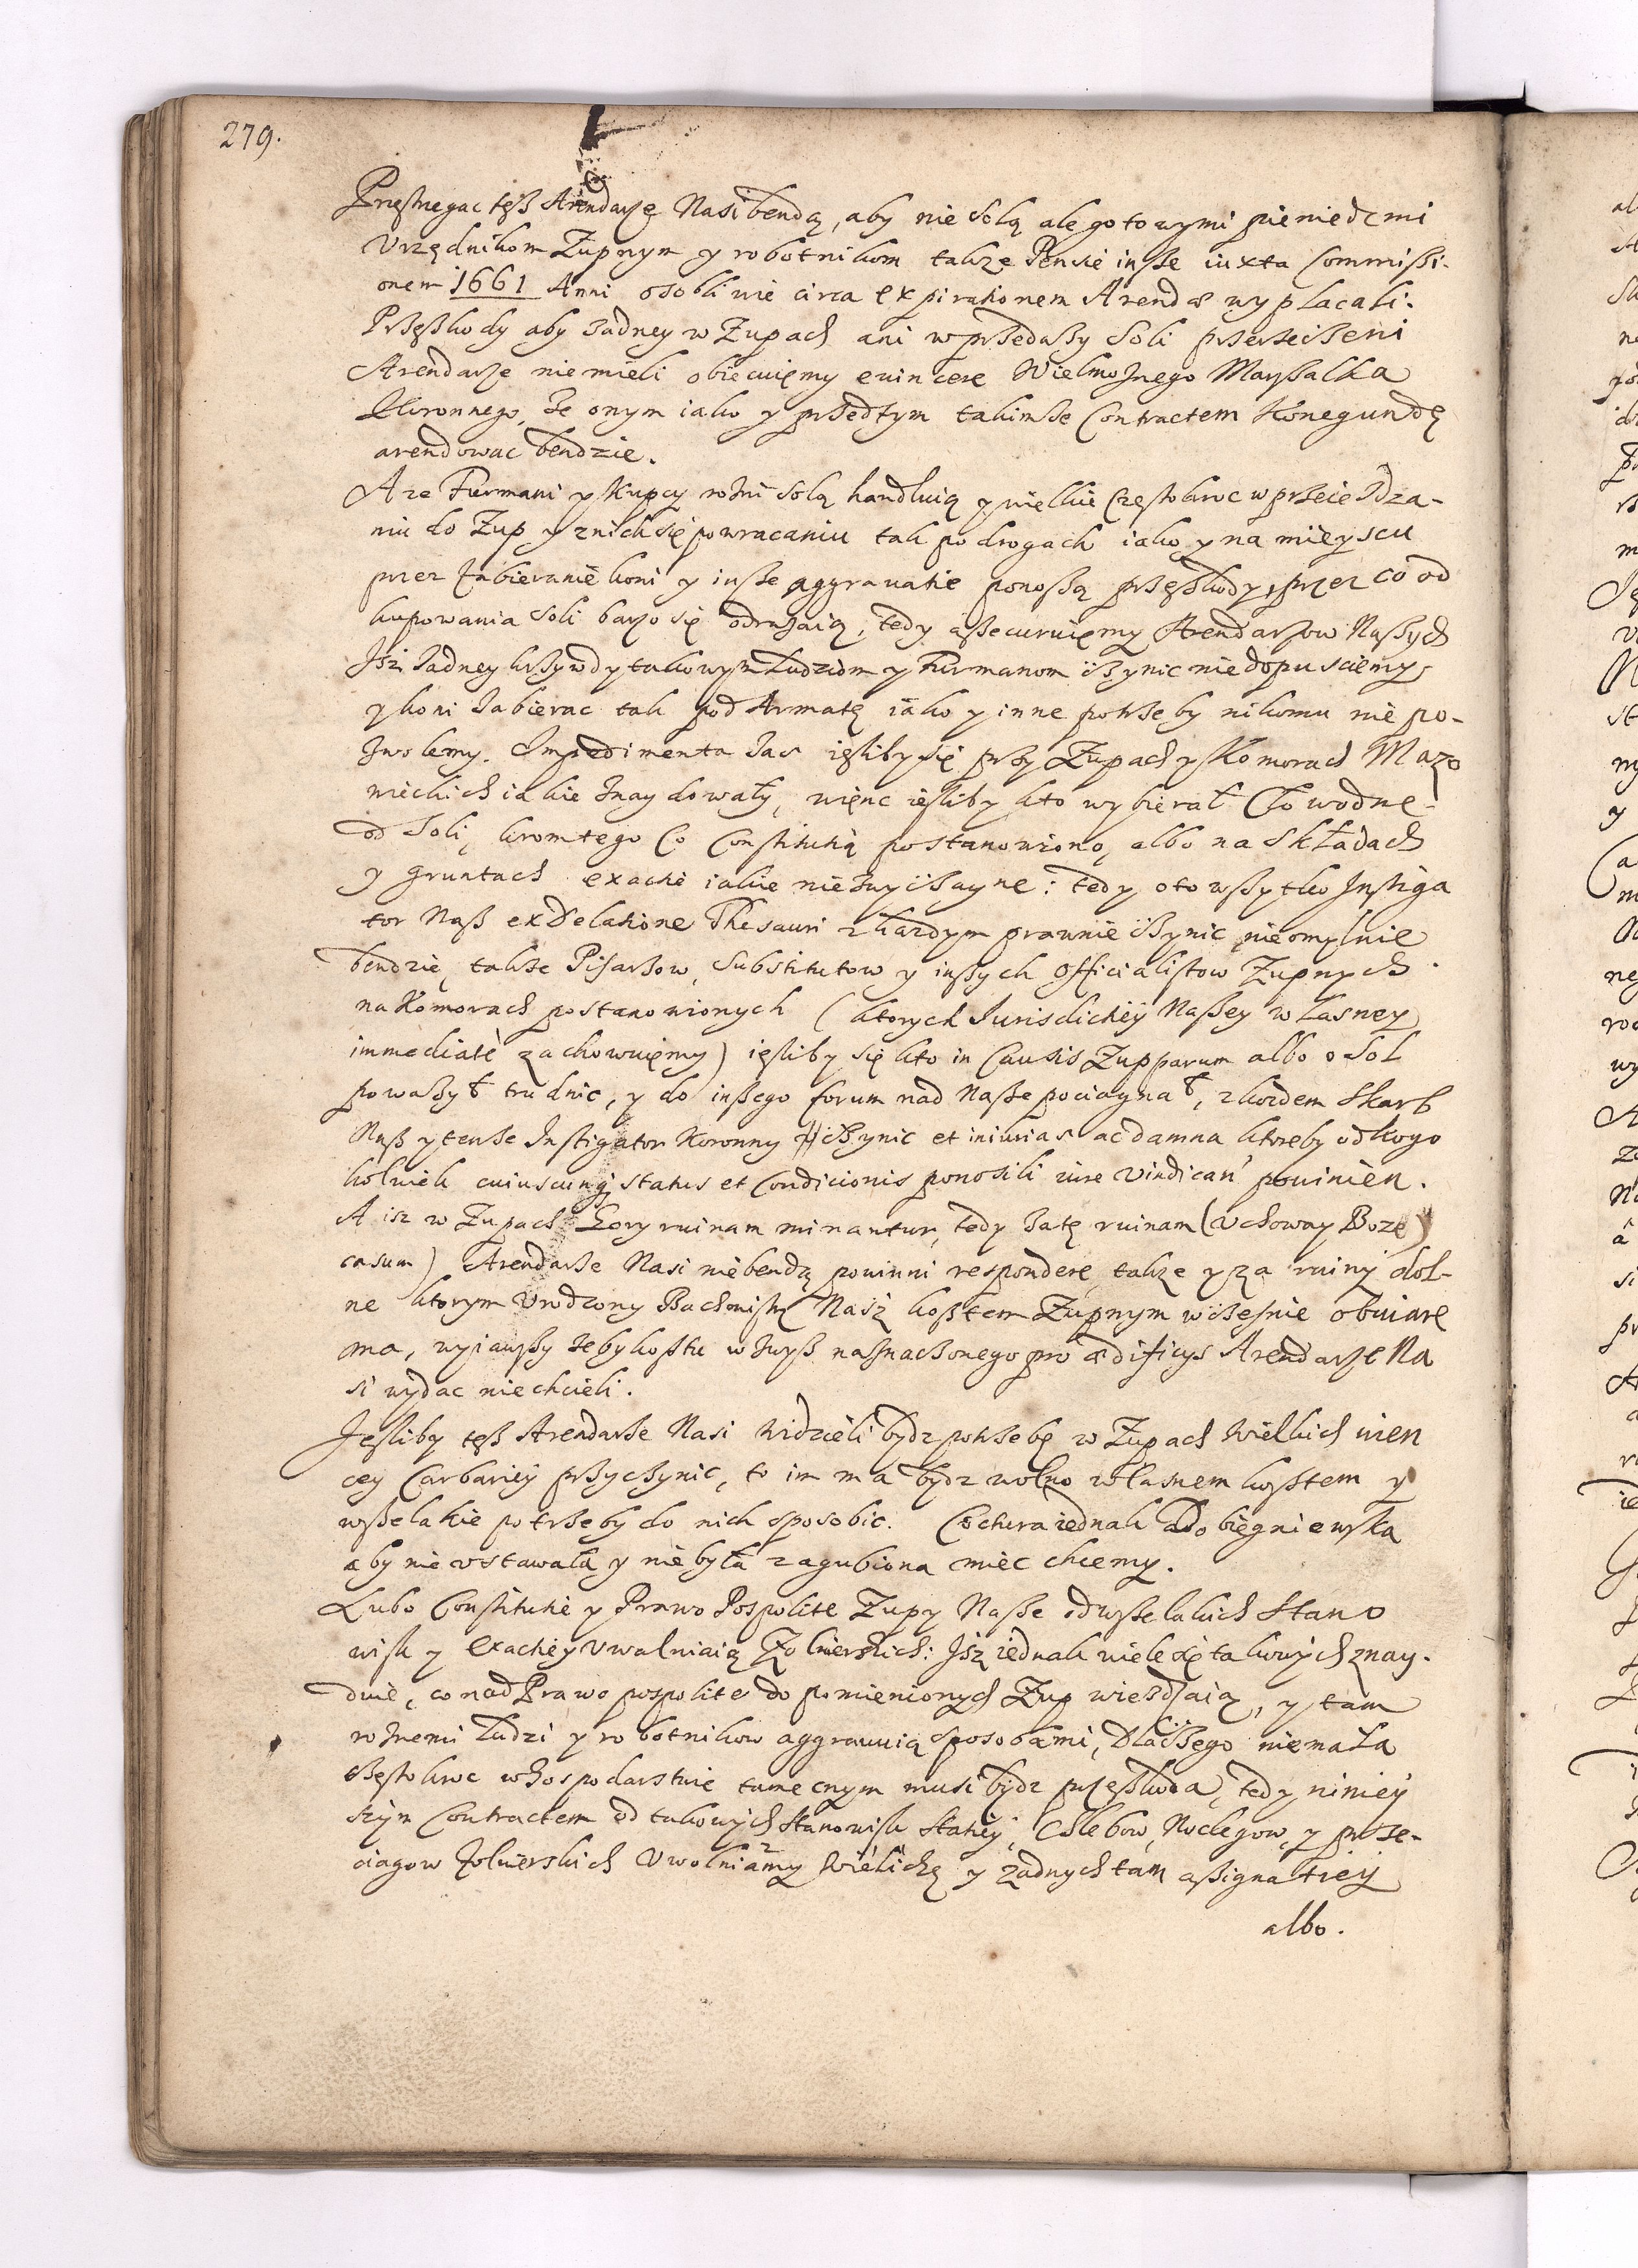 279.
Przestrzegac tesz Arendarze Nasi bendą, aby nie Solą ale gotowymi pieniedzmi
Vrzędnikom Zupnym y robotnikom takze Pensie insze iuxta Commissi-
onem 1661 Anni osobliwie circa expirationem Arendæ wyplacali.
Przeszkody aby zadney w Zupach ani w przedazy Soli przerzeczeni
Arendarze niemieli obiecuięmy euincere Wielmoznego Marszalka
Koronnego, ze onym iako y przedtym takimze Contractem Konegundę
arendowac bendzie.
A ze Furmani y Kupcy rozni Solą handluią y wielkie częstokroc w przeiezdza-
niu do Zup y znich się powracaniu tak po drogach iako y na mieyscu
przez zabieranie koni y insze aggrauatie ponoszą przeszkody, przez co od
kupowania Soli barzo się odrazaią, tedy assecuruięmy Arendarzow Naszych
Isz zadney krzywdy takowym Ludziom y Furmanom czynic niedopusciemy,
y koni zabierac tak pod Armatę iako y inne potrzeby nikomu nie po-
zwolemy. Impedimenta zas iesliby się przy Zupach y Komorach Mazo
wieckich iakie znaydowały, więnc iesliby kto wybierał Cło wodne
od Soli, krom tego Co Constitutią postanowiono, albo na Składach
y gruntach exactie iakie niezwyczayne: tedy oto wszytko Instiga
tor Nasz ex Delatione Thesauri z kazdym prawnie czynic nieomylnie
bendzie, takze Pisarzow, Substitutow y inszych Officialistow Zupnych
na Komorach postanowionych (ktorych Iurisdictiey Naszey wlasney
immediatè zachowuięmy) iesliby się kto in Causis Zupparum albo o Sol
powazył trudnic, y do inszego forum nad Nasze pociągnał, z kazdem Skarb
Nasz y tenze Instigator Koronny czynic et iniurias ac damna ktoreby od kogo
kolwiek cuiuscunq; status et Condicionis ponosili iure vindicari powinien.
A isz w Zupach Gory ruinam minantur, tedy za tę ruinam (Vchoway Boze
casum) Arendarze Nasi niebendą powinni respondere, takze y za ruiny dol-
ne ktorym Vrodzony Bachmistrz Nasz kosztem Zupnym wczesnie obuiare
ma, wyiąwszy zeby kosztu wzwysz naznaczonego pro ædificys Arendarze Na
si wydac niechcieli.
Jesliby tesz Arendarze Nasi widzieli bydz potrzebę w Zupach Wielkich wien
cey Carbariey przyczynic, to im ma bydz wolno własnem kosztem y
wszelakie potrzeby do nich sposobic. Cochtura iednak Dobiegniewska
aby nie vstawała y nie była zagubiona miec chcemy.
Lubo Constitutie y Prawo Pospolite Zupy Nasze od wszelakich Stano
wisk y exactiey Vwalniaią Zolnierskich: Isz iednak wiele się takowych znay-
duie, co nad Prawo pospolite do pomienionych Zup wiezdzaią, y tam
roznemi Ludzi y robotnikow aggrauuią sposobami, Dlaczego niemała
częstokroc w hospodarstwie tamecznym musi bydz przeszkoda, tedy niniey
szym Contractem od takowych Stanowisk Statiey, Chlebow, Noclegow, y prze-
ciagow zolnierskich Vwolniamy Wieliczkę y zadnych tam assignatiey
albo.